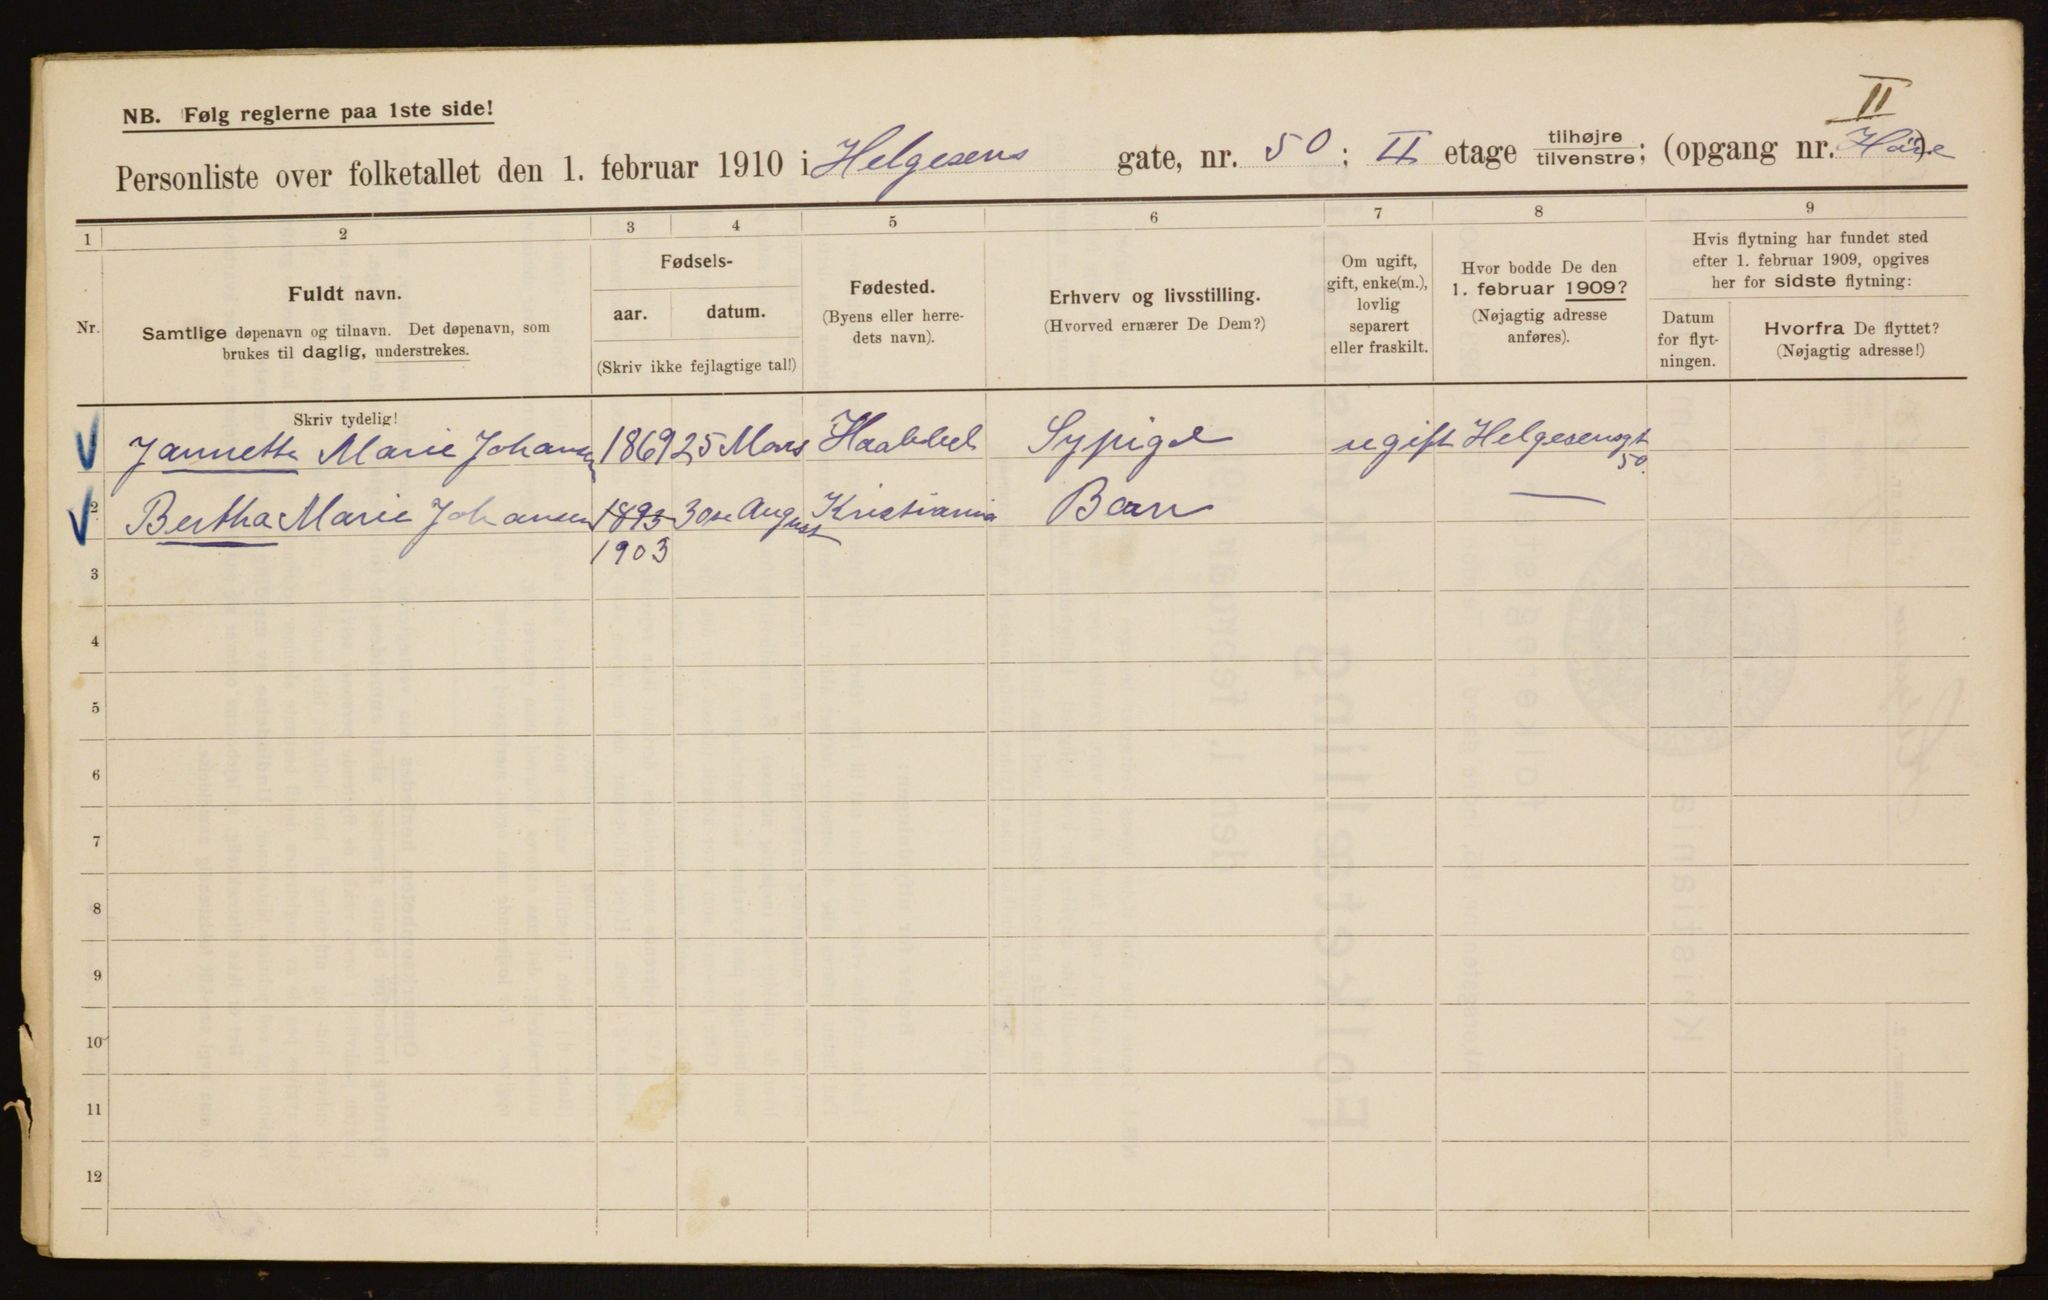 II
NB. Følg reglerne paa 1ste side!
Personliste over folketallet den 1. februar 1910 i Helgesens gate, nr. 50; II etage tilhøjre tilvenstre; (opgang nr. )
1 2 3 4 5 6 7 8 9
Nr.
Fuldt navn.
Samtlige døpenavn og tilnavn. Det døpenavn, som
brukes til daglig, understrekes.
Fødsels-
aar. datum.
(Skriv ikke fejlagtige tal!)
Fødested.
(Byens eller herre-
dets navn).
Erhverv og livsstilling.
(Hvorved ernærer De Dem?)
Om ugift,
gift, enke(m.),
lovlig
separert
eller fraskilt.
Hvor bodde De den
1. februar 1909?
(Nøjagtig adresse
anføres).
Hvis flytning har fundet sted
efter 1. februar 1909, opgives
her for sidste flytning:
Datum
for flyt-
ningen.
Hvorfra De flyttet?
(Nøjagtig adresse!)
Skriv tydelig!
Jannette Marie Johansen 1869 25 Mars Sypige ugift Helgesensgt
50.
2 Bertha Marie Johansen 1893 30te August Kristiania Barn —
1903
3
4
5
6
7
8
9
10
11
12